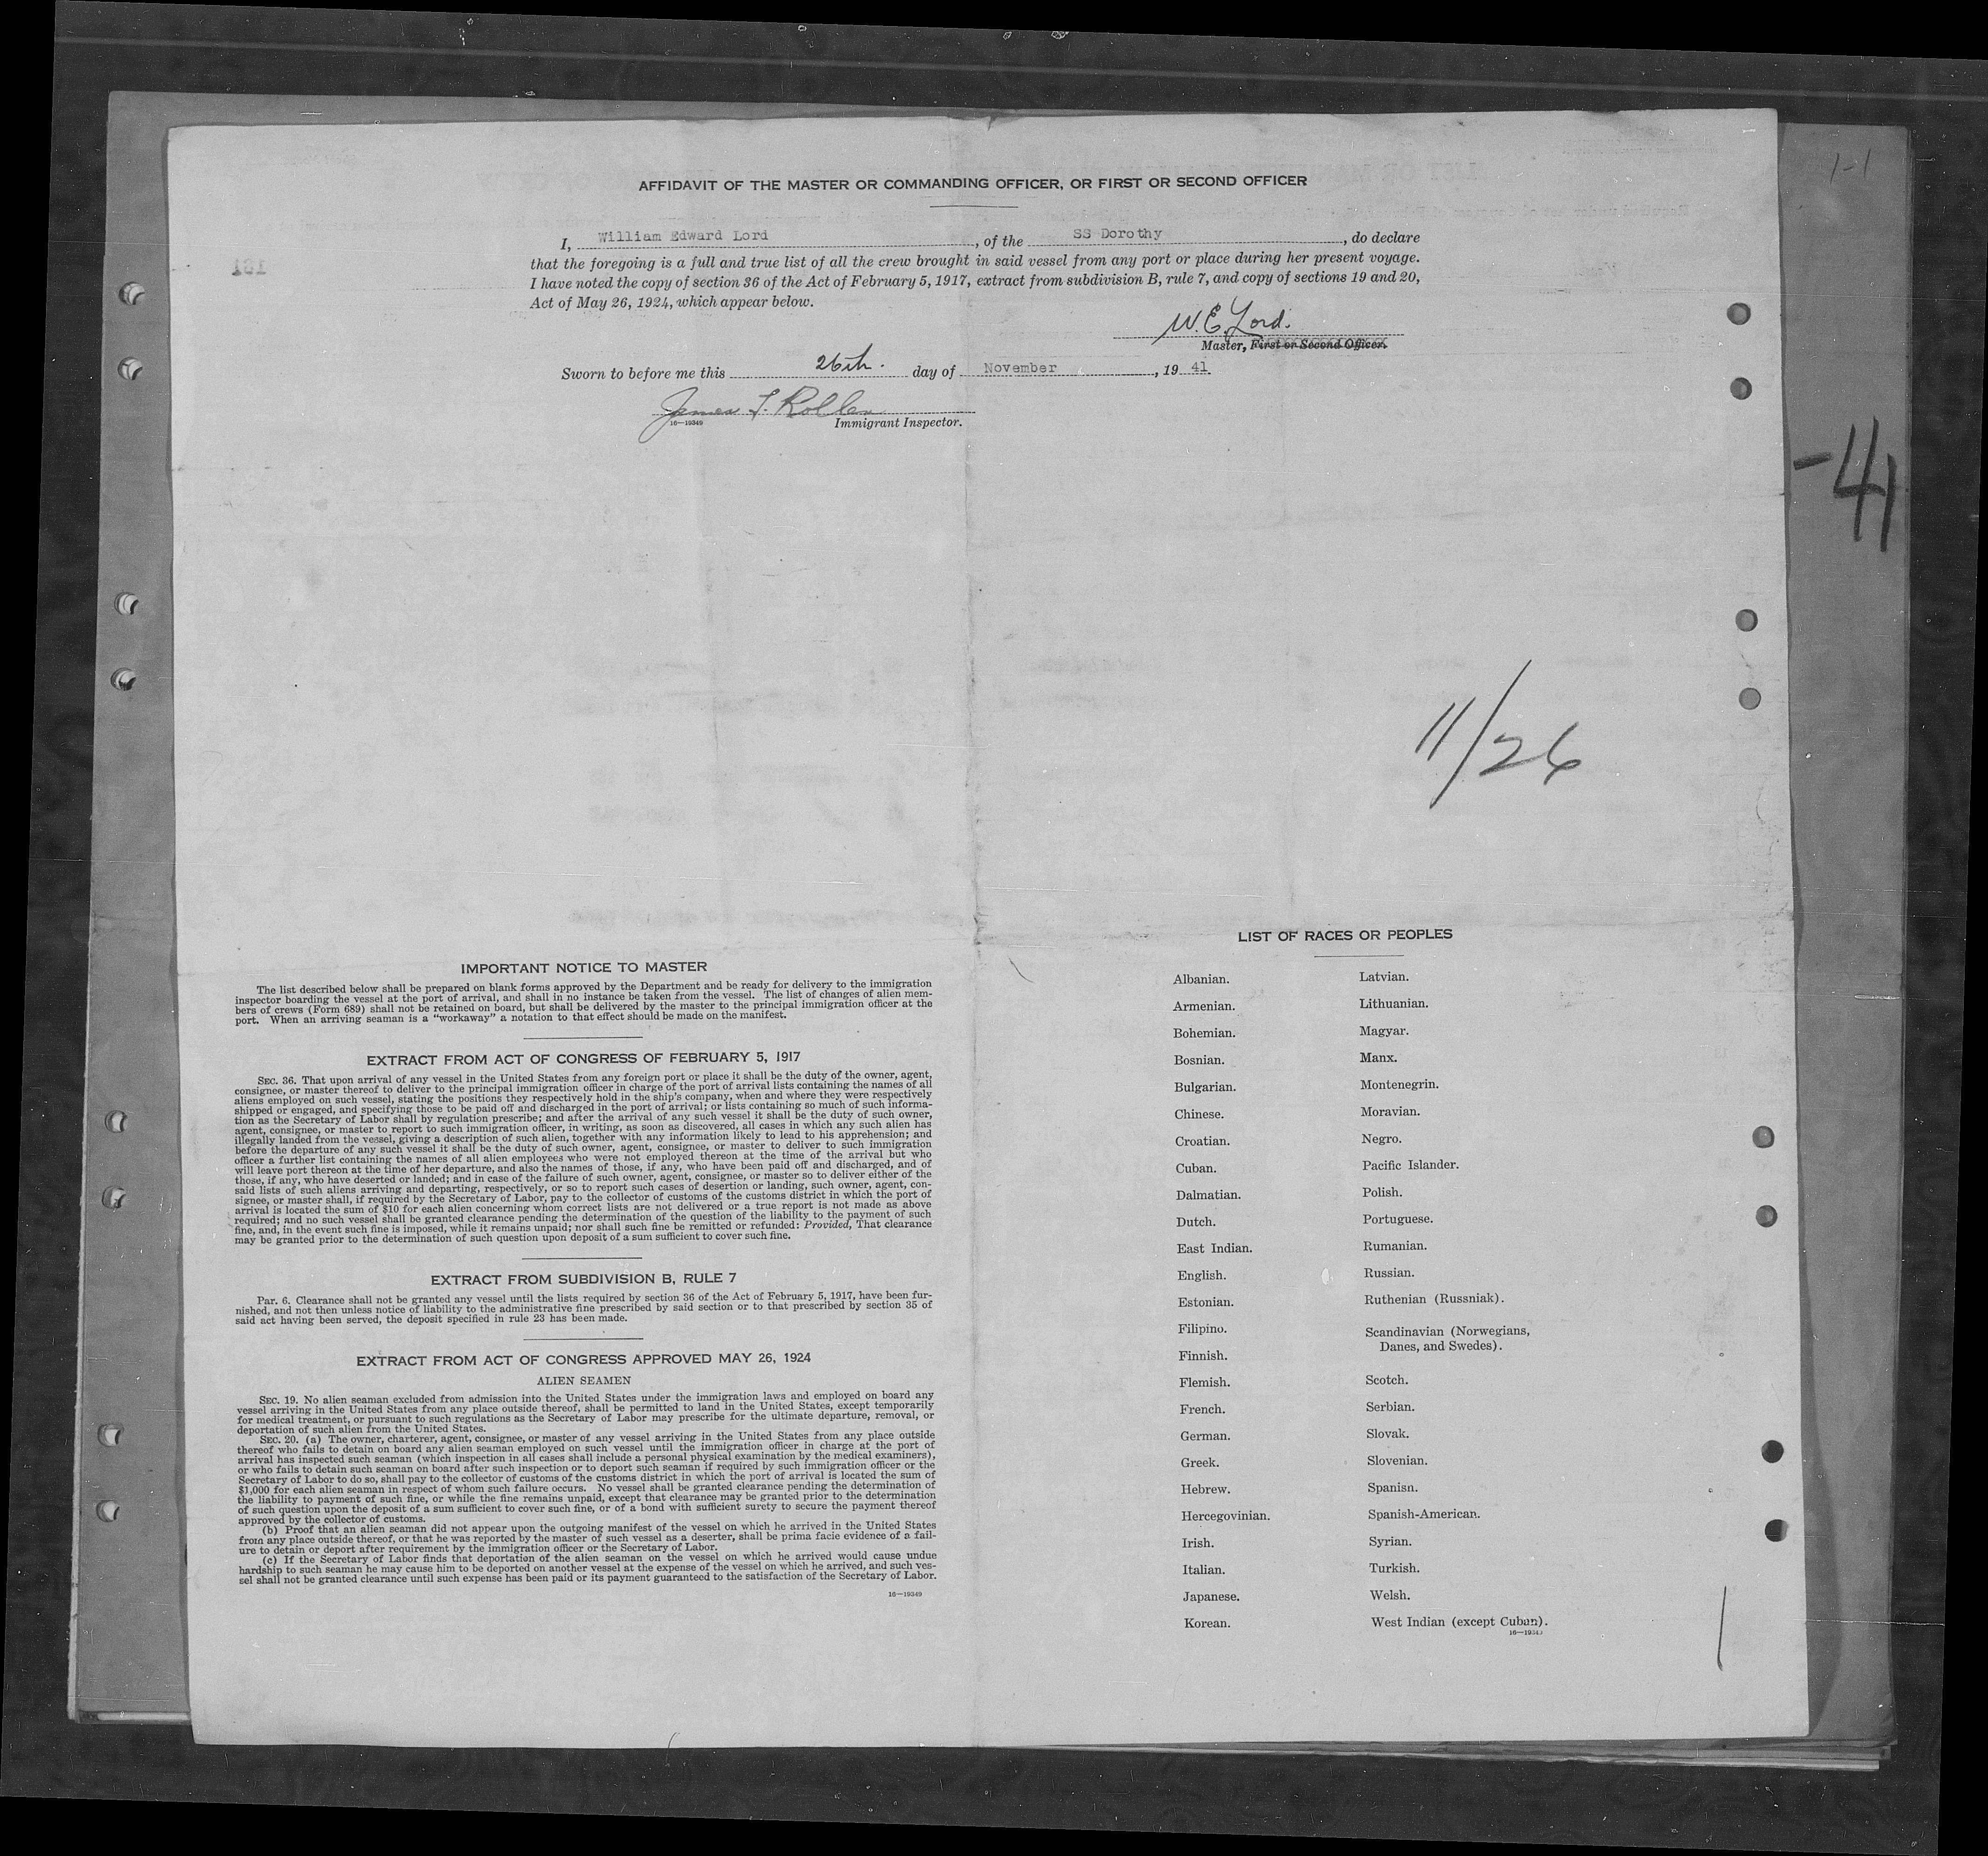 1-1
AFFIDAVIT OF THE MASTER OR COMMANDING OFFICER, OR FIRST OR SECOND OFFICER
I, William Edward Lord, of the SS Dorothy, do declare
that the foregoing is a full and true list of all the crew brought in said vessel from any port or place during her present voyage.
I have noted the copy of section 36 of the Act of February 5, 1917, extract from subdivision B, rule 7, and copy of sections 19 and 20,
Act of May 26, 1924, which appear below.
W. E. Lord.
Master, First or Second Officer.
Sworn to before me this 26th. day of November, 19 41
James
16—19349 Immigrant Inspector.
-41
11/26
IMPORTANT NOTICE TO MASTER
The list described below shall be prepared on blank forms approved by the Department and be ready for delivery to the immigration
inspector boarding the vessel at the port of arrival, and shall in no instance be taken from the vessel. The list of changes of alien mem-
bers of crews (Form 689) shall not be retained on board, but shall be delivered by the master to the principal immigration officer at the
port. When an arriving seaman is a "workaway" a notation to that effect should be made on the manifest.
EXTRACT FROM ACT OF CONGRESS OF FEBRUARY 5, 1917
SEC. 36. That upon arrival of any vessel in the United States from any foreign port or place it shall be the duty of the owner, agent,
consignee, or master thereof to deliver to the principal immigration officer in charge of the port of arrival lists containing the names of all
aliens employed on such vessel, stating the positions they respectively hold in the ship's company, when and where they were respectively
shipped or engaged, and specifying those to be paid off and discharged in the port of arrival; or lists containing so much of such informa-
tion as the Secretary of Labor shall by regulation prescribe; and after the arrival of any such vessel it shall be the duty of such owner,
agent, consignee, or master to report to such immigration officer, in writing, as soon as discovered, all cases in which any such alien has
illegally landed from the vessel, giving a description of such alien, together with any information likely to lead to his apprehension; and
before the departure of any such vessel it shall be the duty of such owner, agent, consignee, or master to deliver to such immigration
officer a further list containing the names of all alien employees who were not employed thereon at the time of the arrival but who
will leave port thereon at the time of her departure, and also the names of those, if any, who have been paid off and discharged, and of
those, if any, who have deserted or landed; and in case of the failure of such owner, agent, consignee, or master so to deliver either of the
said lists of such aliens arriving and departing, respectively, or so to report such cases of desertion or landing, such owner, agent, con-
signee, or master shall, if required by the Secretary of Labor, pay to the collector of customs of the customs district in which the port of
arrival is located the sum of $10 for each alien concerning whom correct lists are not delivered or a true report is not made as above
required; and no such vessel shall be granted clearance pending the determination of the question of the liability to the payment of such
fine, and, in the event such fine is imposed, while it remains unpaid; nor shall such fine be remitted or refunded: Provided, That clearance
may be granted prior to the determination of such question upon deposit of a sum sufficient to cover such fine.
EXTRACT FROM SUBDIVISION B, RULE 7
Par. 6. Clearance shall not be granted any vessel until the lists required by section 36 of the Act of February 5, 1917, have been fur-
nished, and not then unless notice of liability to the administrative fine prescribed by said section or to that prescribed by section 35 of
said act having been served, the deposit specified in rule 23 has been made.
EXTRACT FROM ACT OF CONGRESS APPROVED MAY 26, 1924
ALIEN SEAMEN
SEC. 19. No alien seaman excluded from admission into the United States under the immigration laws and employed on board any
vessel arriving in the United States from any place outside thereof, shall be permitted to land in the United States, except temporarily
for medical treatment, or pursuant to such regulations as the Secretary of Labor may prescribe for the ultimate departure, removal, or
deportation of such alien from the United States.
SEC. 20. (a) The owner, charterer, agent, consignee, or master of any vessel arriving in the United States from any place outside
thereof who fails to detain on board any alien seaman employed on such vessel until the immigration officer in charge at the port of
arrival has inspected such seaman (which inspection in all cases shall include a personal physical examination by the medical examiners),
or who fails to detain such seaman on board after such inspection or to deport such seaman if required by such immigration officer or the
Secretary of Labor to do so, shall pay to the collector of customs of the customs district in which the port of arrival is located the sum of
$1,000 for each alien seaman in respect of whom such failure occurs. No vessel shall be granted clearance pending the determination of
the liability to payment of such fine, or while the fine remains unpaid, except that clearance may be granted prior to the determination
of such question upon the deposit of a sum sufficient to cover such fine, or of a bond with sufficient surety to secure the payment thereof
approved by the collector of customs.
(b) Proof that an alien seaman did not appear upon the outgoing manifest of the vessel on which he arrived in the United States
from any place outside thereof, or that he was reported by the master of such vessel as a deserter, shall be prima facie evidence of a fail-
ure to detain or deport after requirement by the immigration officer or the Secretary of Labor.
(c) If the Secretary of Labor finds that deportation of the alien seaman on the vessel on which he arrived would cause undue
hardship to such seaman he may cause him to be deported on another vessel at the expense of the vessel on which he arrived, and such ves-
sel shall not be granted clearance until such expense has been paid or its payment guaranteed to the satisfaction of the Secretary of Labor.
16—19349
LIST OF RACES OR PEOPLES
Albanian.
Armenian.
Bohemian.
Bosnian.
Bulgarian.
Chinese.
Croatian.
Cuban.
Dalmatian.
Dutch.
East Indian.
English.
Estonian.
Filipino.
Finnish.
Flemish.
French.
German.
Greek.
Hebrew.
Hercegovinian.
Irish.
Italian.
Japanese.
Korean.
Latvian.
Lithuanian.
Magyar.
Manx.
Montenegrin.
Moravian.
Negro.
Pacific Islander.
Polish.
Portuguese.
Rumanian.
Russian.
Ruthenian (Russniak).
Scandinavian (Norwegians,
Danes, and Swedes).
Scotch.
Serbian.
Slovak.
Slovenian.
Spanish.
Spanish-American.
Syrian.
Turkish.
Welsh.
West Indian (except Cuban).
16—19349